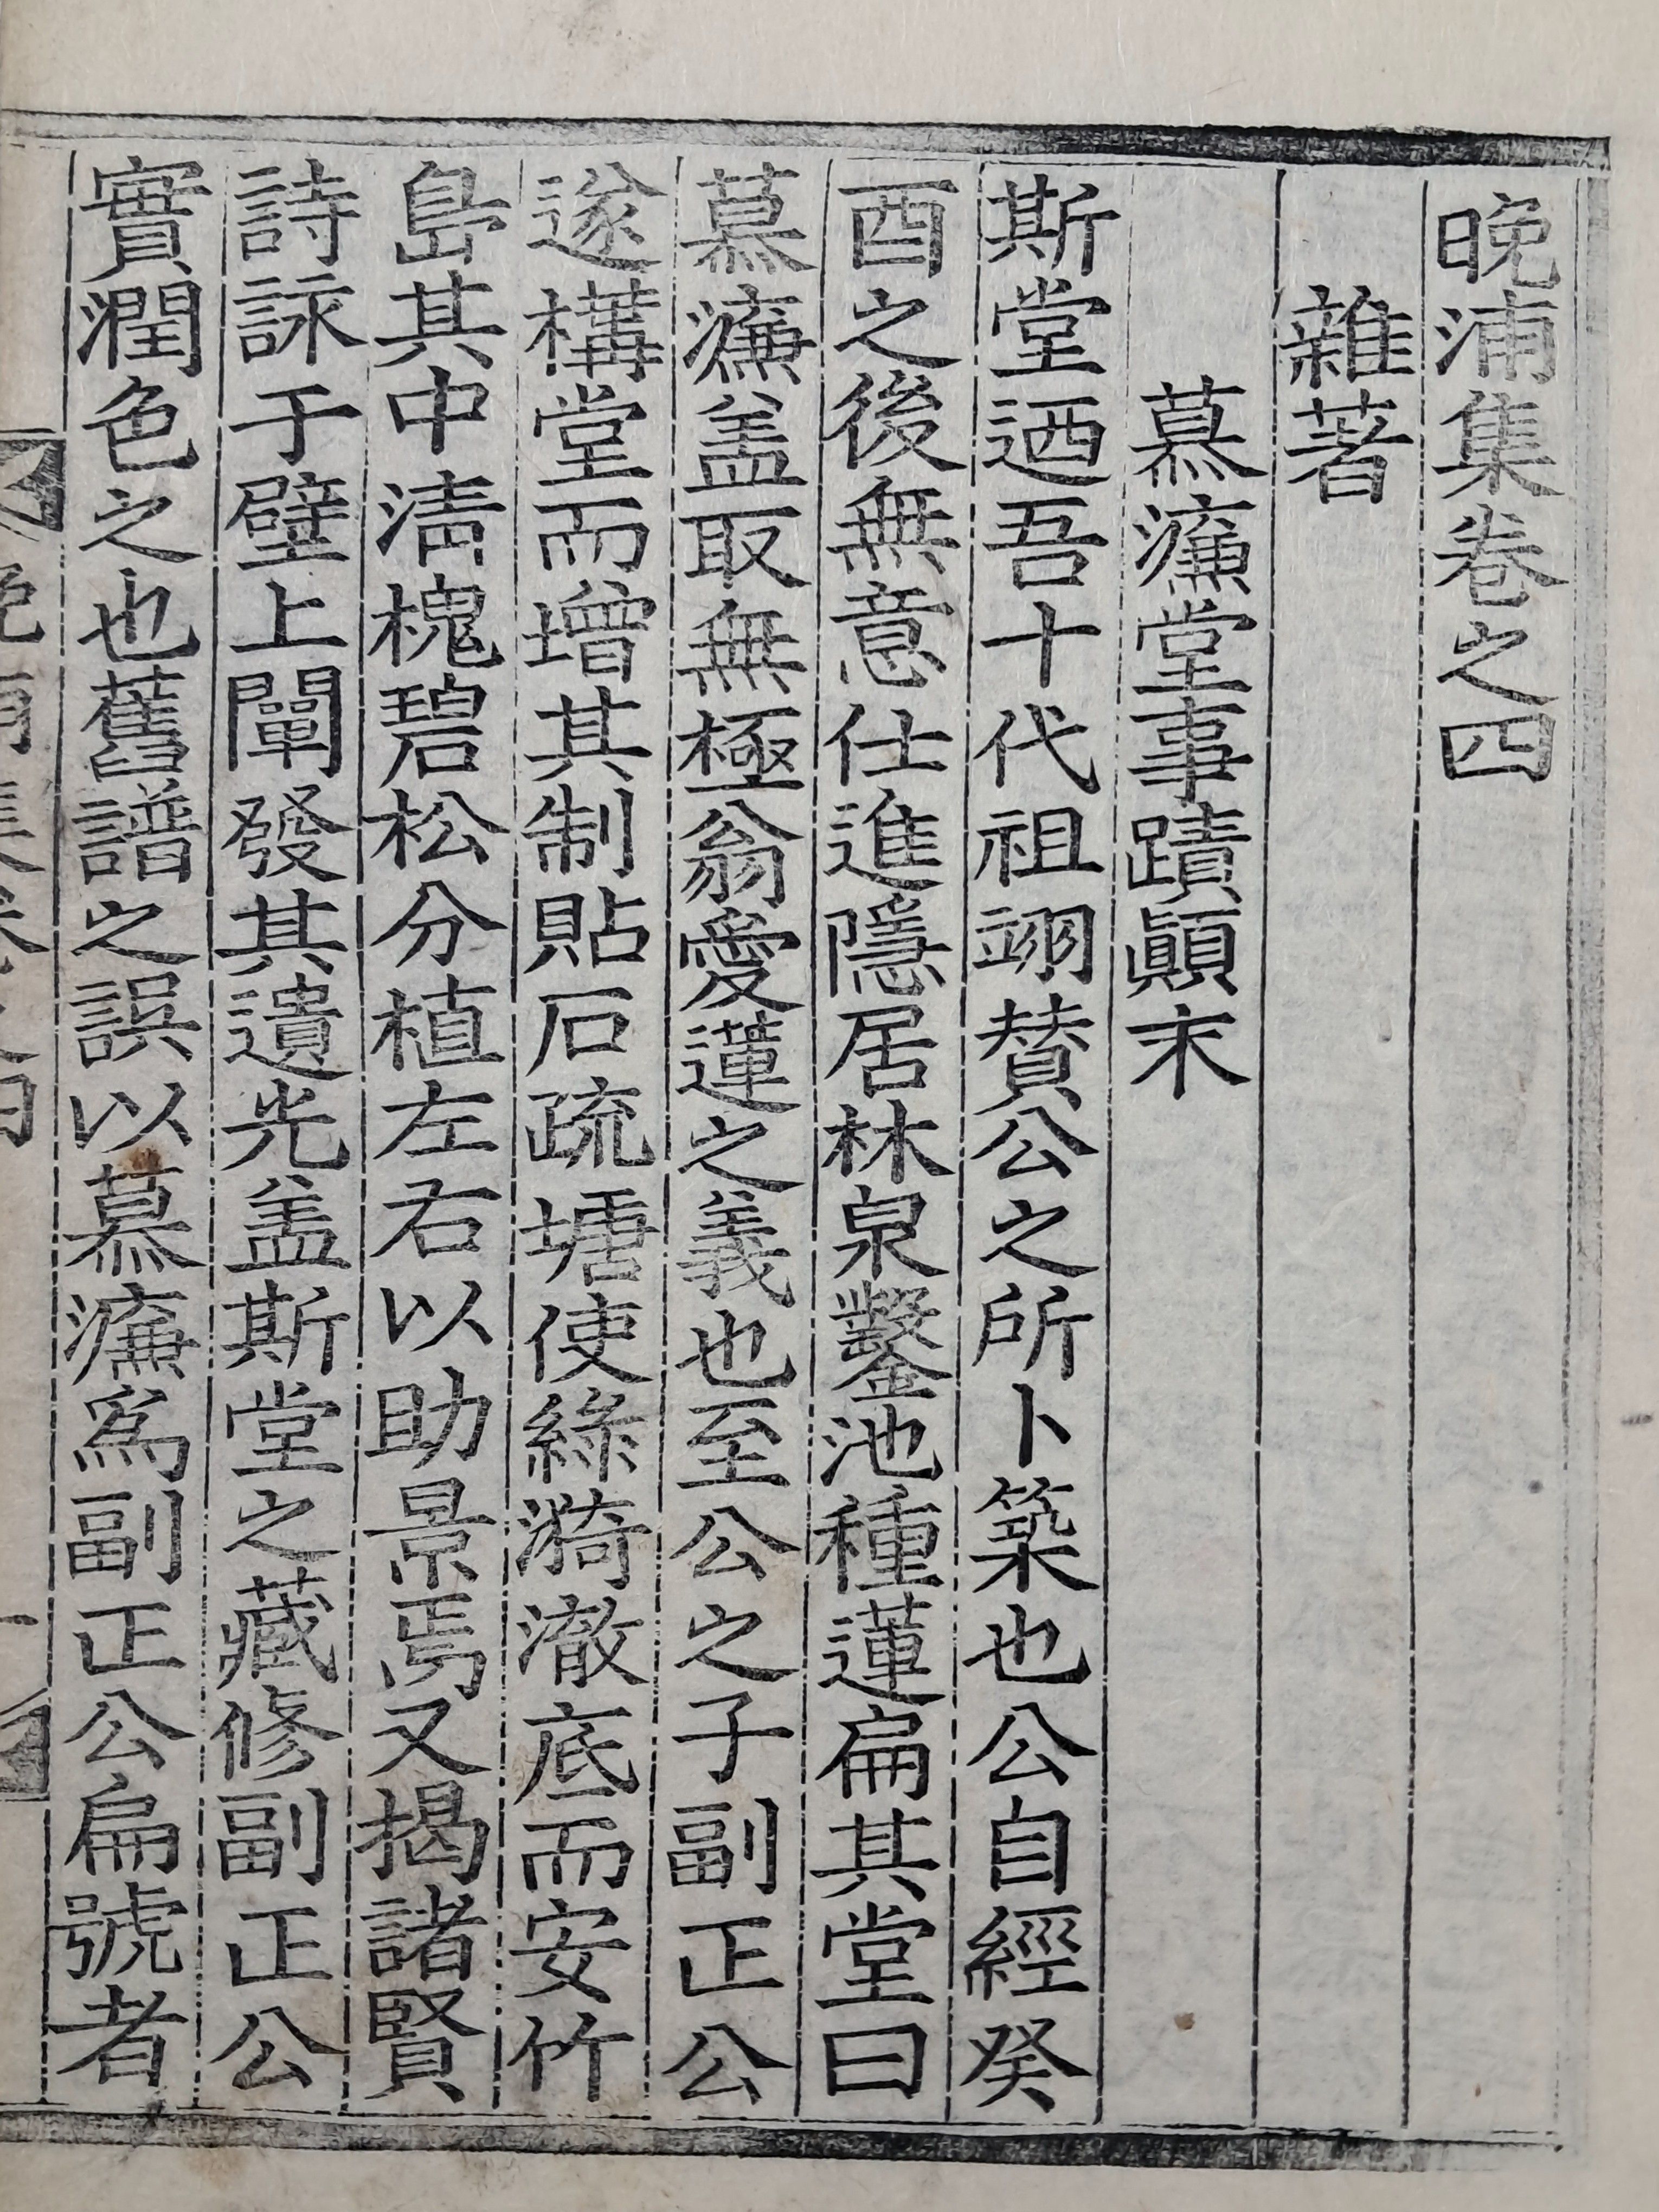 晩浦集卷之四
雜著
慕濂堂事蹟顚末
斯堂迺吾十代祖翊賛公之所卜築也公自經癸
酉之後無意仕進隱居林泉鑿池種蓮扁其堂曰
慕濂盖取無極翁愛蓮之義也至公之子副正公
遂構堂而增其制貼石疏塘使綠漪澈底而安竹
島其中淸槐碧松分植左右以助景焉又揭諸賢
詩詠于壁上闡發其遺光盖斯堂之藏修副正公
實潤色之也舊譜之誤以慕濂爲副正公扁號者
晩浦集卷之四
一